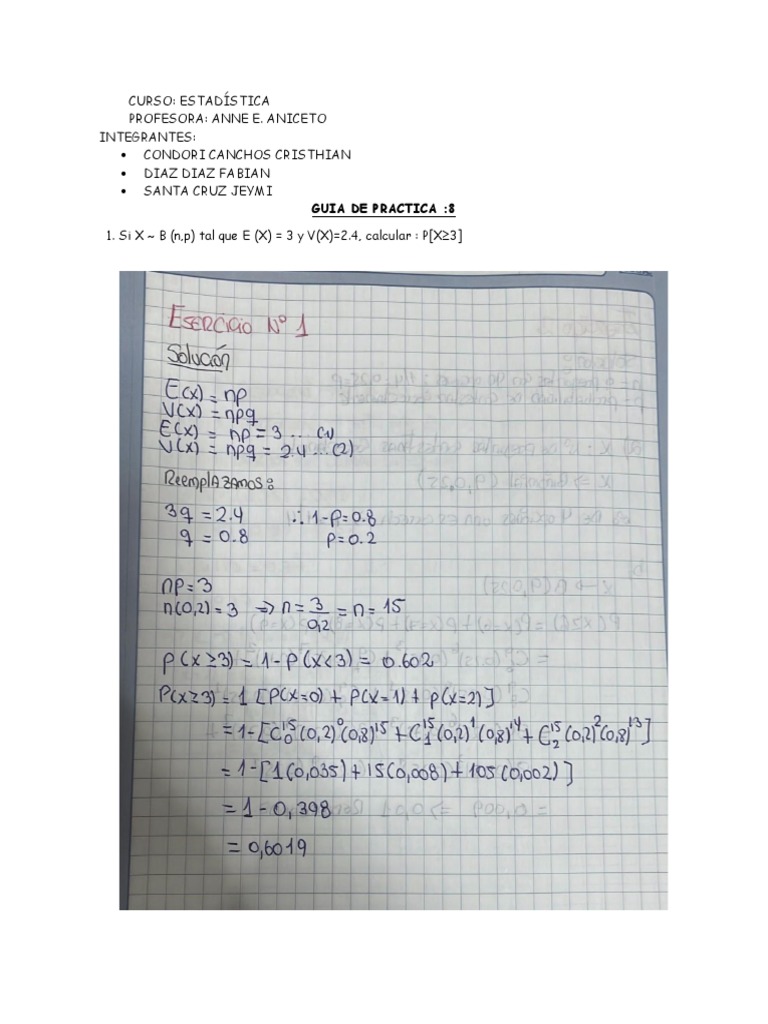 CURSO: ESTADÍSTICA
PROFESORA: ANNE E. ANICETO
INTEGRANTES:
• CONDORI CANCHOS CRISTHIAN
• DIAZ DIAZ FABIAN
• SANTA CRUZ JEYMI
GUIA DE PRACTICA :8
1. Si X ~ B (n,p) tal que E (X) = 3 y V(X)=2.4, calcular : P[X≥3]
EJERCICIO Nº 1
Solución
E(x) = np
V(x) = npq
E(x) = np = 3 ... (1)
V(x) = npq = 2.4 ...(2)
Reemplazamos:
3q = 2.4 ∴ 1-p=0.8
q = 0.8 p=0.2
np=3
n(0,2)=3 => n = 3/0,2 = n = 15
P(x≥3) = 1 - P(x<3) = 0.602
P(x≥3) = 1 [P(x=0) + P(x-1) + p(x=2)]
= 1-[C₀¹⁵(0,2)⁰(0,8)¹⁵ + C₁¹⁵(0,2)¹(0,8)¹⁴ + C₂¹⁵(0,2)²(0,8)¹³]
= 1-[1(0,035)+15(0,008)+105(0,002)]
= 1 - 0,398
= 0,6019